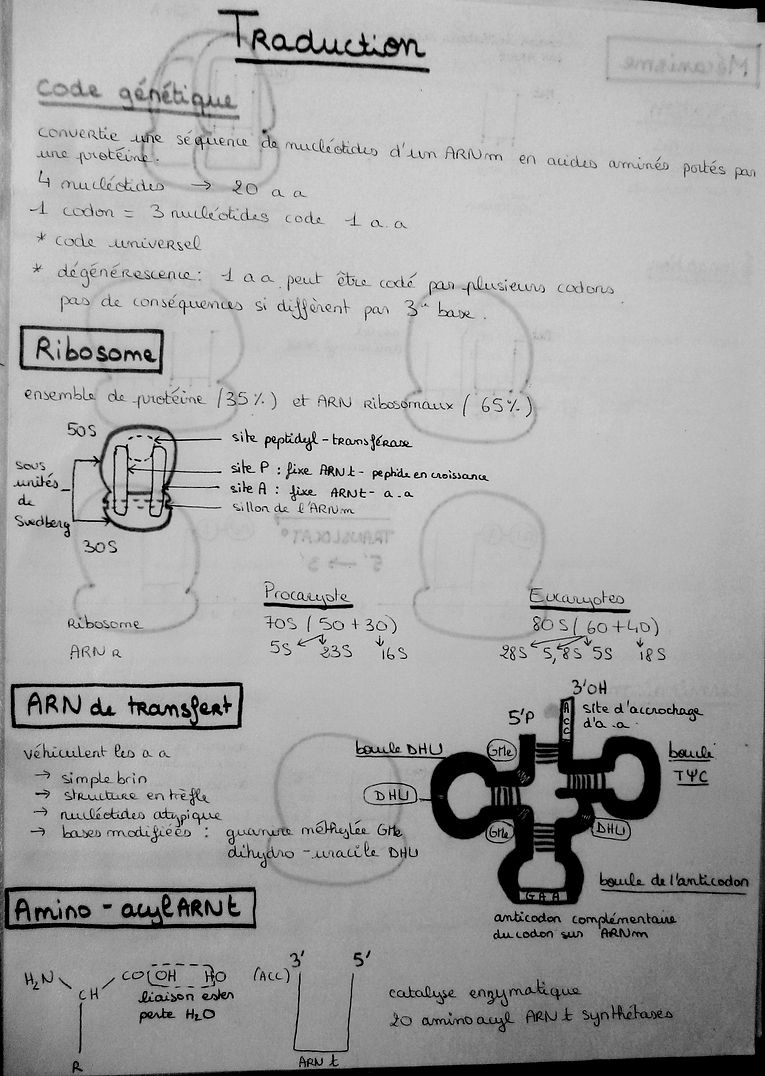 Traduction
Code génétique
convertie une séquence de nucléotides d'un ARNm en acides aminés portés par
une protéine.
4 nucléotides → 20 a a
1 codon = 3 nucléotides code 1 a.a
* code universel
* dégénérescence : 1 aa peut être codé par plusieurs codons
pas de conséquences si diffèrent par 3e base.
Ribosome
ensemble de protéine (35%) et ARN Ribosomaux (65%)
50S
site peptidyl-transférase
sous
unités
de
Svedberg
site P : fixe ARNt - peptide en croissance
site A : fixe ARNt - a.a
sillon de l'ARNm
30S
Procaryote
Eucaryotes
Ribosome
70S (50 + 30)
80S (60 + 40)
ARN R
5S 23S 16S
28S 5,8S 5S 18S
ARN de transfert
3'OH
5'P
ACC
site d'accrochage
d'a.a.
véhiculent les a a
→ simple brin
→ structure en trèfle
→ nucléotides atypique
→ bases modifiées : guanine méthylée GMe
dihydro-uracile DHU
boucle DHU
GMe
boucle
TΨC
DHU
GMe
DHU
boucle de l'anticodon
GAA
anticodon complémentaire
du codon sur ARNm
Amino-acyl ARNt
H₂N
CH
COOH
H₂O
liaison ester
perte H₂O
R
(ACC)
3'
5'
ARNt
catalyse enzymatique
20 amino acyl ARNt synthétases
Mécanisme
TRANSLOCAT°
5' → 3'